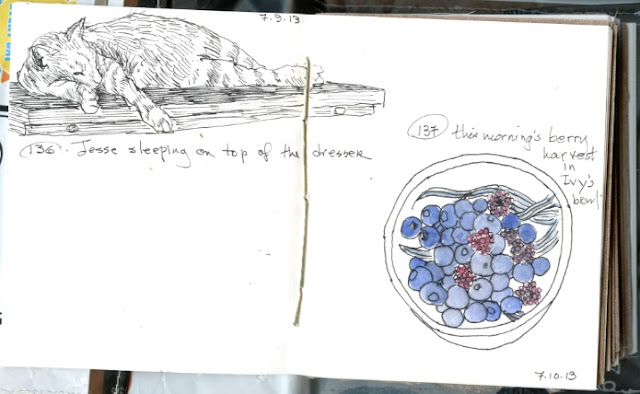 7.9.13
136. Jesse sleeping on top of the dresser
137 this morning's berry
harvest
in
Ivy's
bowl.
7.10.13